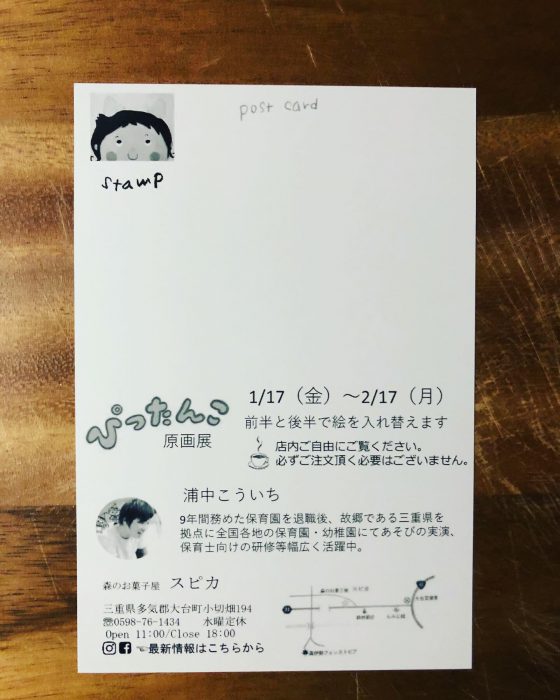 post card
stamp
ぺったんこ
原画展
1/17（金）～2/17（月）
前半と後半で絵を入れ替えます
店内ご自由にご覧ください。
必ずご注文頂く必要はございません。
浦中こういち
9年間務めた保育園を退職後、故郷である三重県を
拠点に全国各地の保育園・幼稚園にてあそびの実演、
保育士向けの研修等幅広く活躍中。
森のお菓子屋 スピカ
三重県多気郡大台町小切畑194
☏0598-76-1434 水曜定休
Open 11:00/Close 18:00
☜最新情報はこちらから
森のお菓子屋